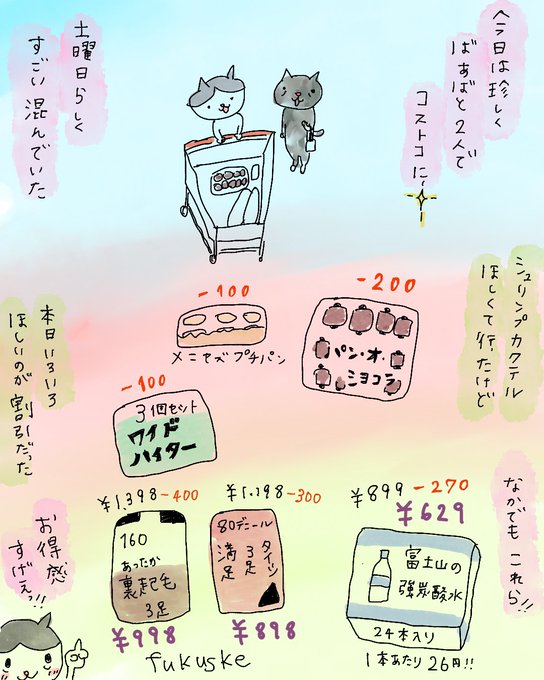 今日は珍しく
ばあばと2人で
コストコに
土曜日らしく
すごい混んでいた
シュリンプカクテル
ほしくて行ったけど
本日いろいろ
ほしいのが割引だった
-100
メニセズプチパン
-200
パン・オ・
ショコラ
-100
3個セット
ワイド
ハイター
なかでもこれら!!
お得感
すげぇっ!!
¥1,398-400
160
あったか
裏起毛
3足
¥998
¥1,198-300
80デニール
タイツ
3足
満足
¥898
fukuske
¥899-270
¥629
富士山の
強炭酸水
24本入り
1本あたり26円!!